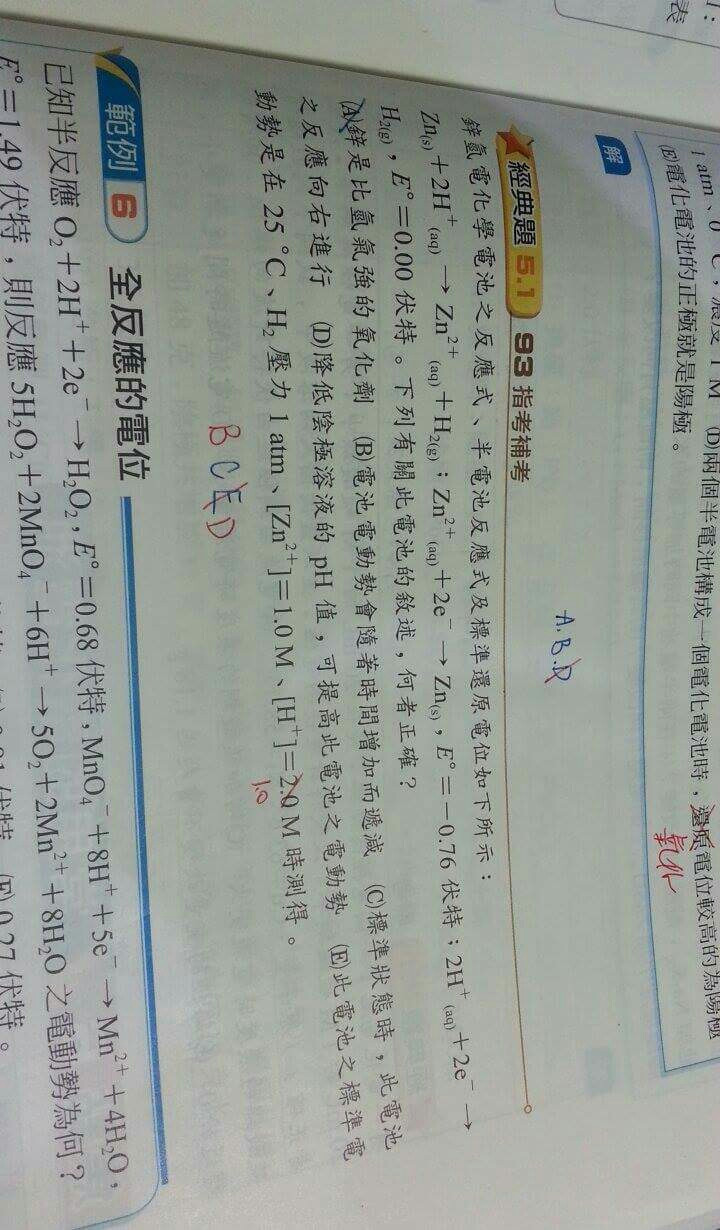 表
1 atm、0 °C，濃度 1 M (D)兩個半電池構成一個電化電池時，還原電位較高的為陽極
氧化
(E)電化電池的正極就是陽極。
解
A.B.D
經典題 5.1 93 指考補考
鋅氫電化學電池之反應式、半電池反應式及標準還原電位如下所示：
Zn(s)＋2H⁺(aq) → Zn²⁺(aq)＋H₂(g)；Zn²⁺(aq)＋2e⁻ → Zn(s)，E°＝−0.76 伏特；2H⁺(aq)＋2e⁻ →
H₂(g)，E°＝0.00 伏特。下列有關此電池的敘述，何者正確？
(A)鋅是比氫氣強的氧化劑 (B)電池電動勢會隨著時間增加而遞減 (C)標準狀態時，此電池
之反應向右進行 (D)降低陰極溶液的 pH 值，可提高此電池之電動勢 (E)此電池之標準電
動勢是在 25 °C、H₂ 壓力 1 atm、[Zn²⁺]＝1.0 M、[H⁺]＝2.0 M 時測得。
1.0
B C E D
範例 6 全反應的電位
已知半反應 O₂＋2H⁺＋2e⁻ → H₂O₂，E°＝0.68 伏特，MnO₄⁻＋8H⁺＋5e⁻ → Mn²⁺＋4H₂O，
E°＝1.49 伏特，則反應 5H₂O₂＋2MnO₄⁻＋6H⁺ → 5O₂＋2Mn²⁺＋8H₂O 之電動勢為何？
伏特 (E) 0.27 伏特。